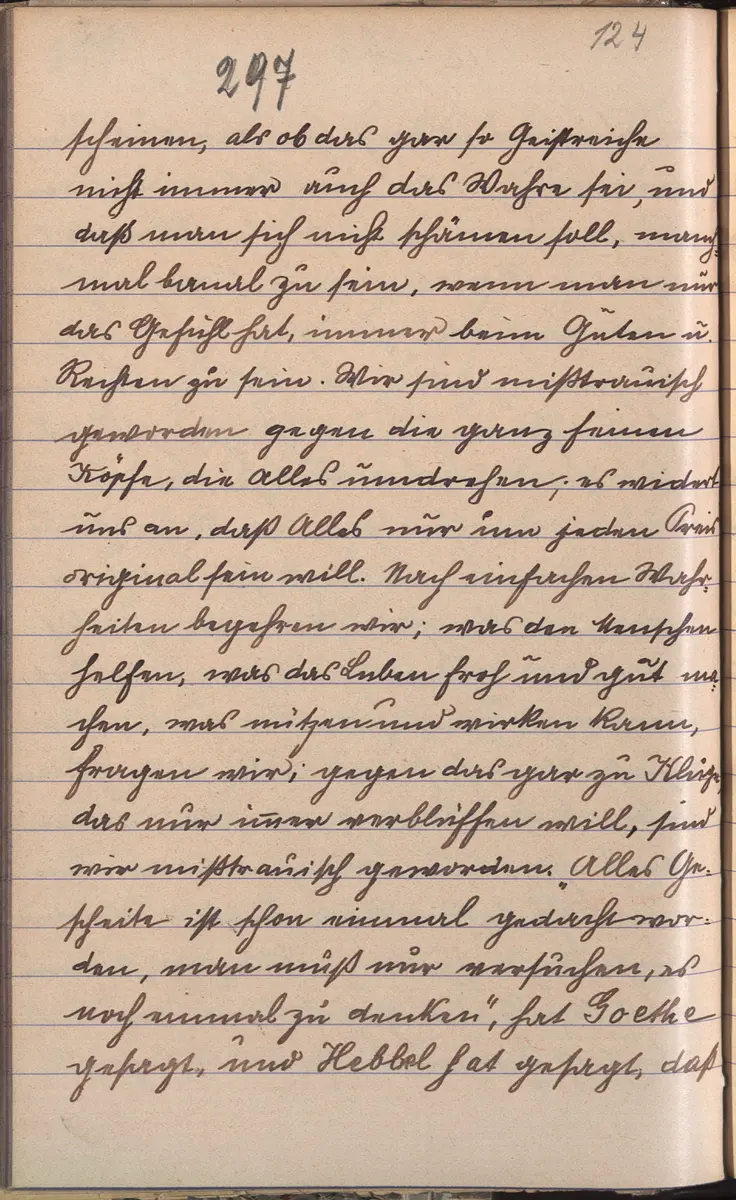 124
297
scheinen, als ob das gar so Geistreiche
nicht immer auch das Wahre sei, und
daß man sich nicht schämen soll, manch-
mal banal zu sein, wenn man nur
das Gefühl hat, immer beim Guten u.
Rechten zu sein. Wir sind mißtrauisch
geworden gegen die ganz feinen
Köpfe, die Alles umdrehen; es widert
uns an, daß Alles nur um jeden Preis
original sein will. Nach einfachen Wahr-
heiten begehren wir; was den Menschen
helfen, was das Leben froh und gut ma-
chen, was nützen und wirken kann,
fragen wir; gegen das gar zu Kluge,
das nur immer verblüffen will, sind
wir mißtrauisch geworden. „Alles Ge-
scheite ist schon einmal gedacht wor-
den, man muß nur versuchen, es
noch einmal zu denken", hat Goethe
gesagt, und Hebbel hat gesagt, daß